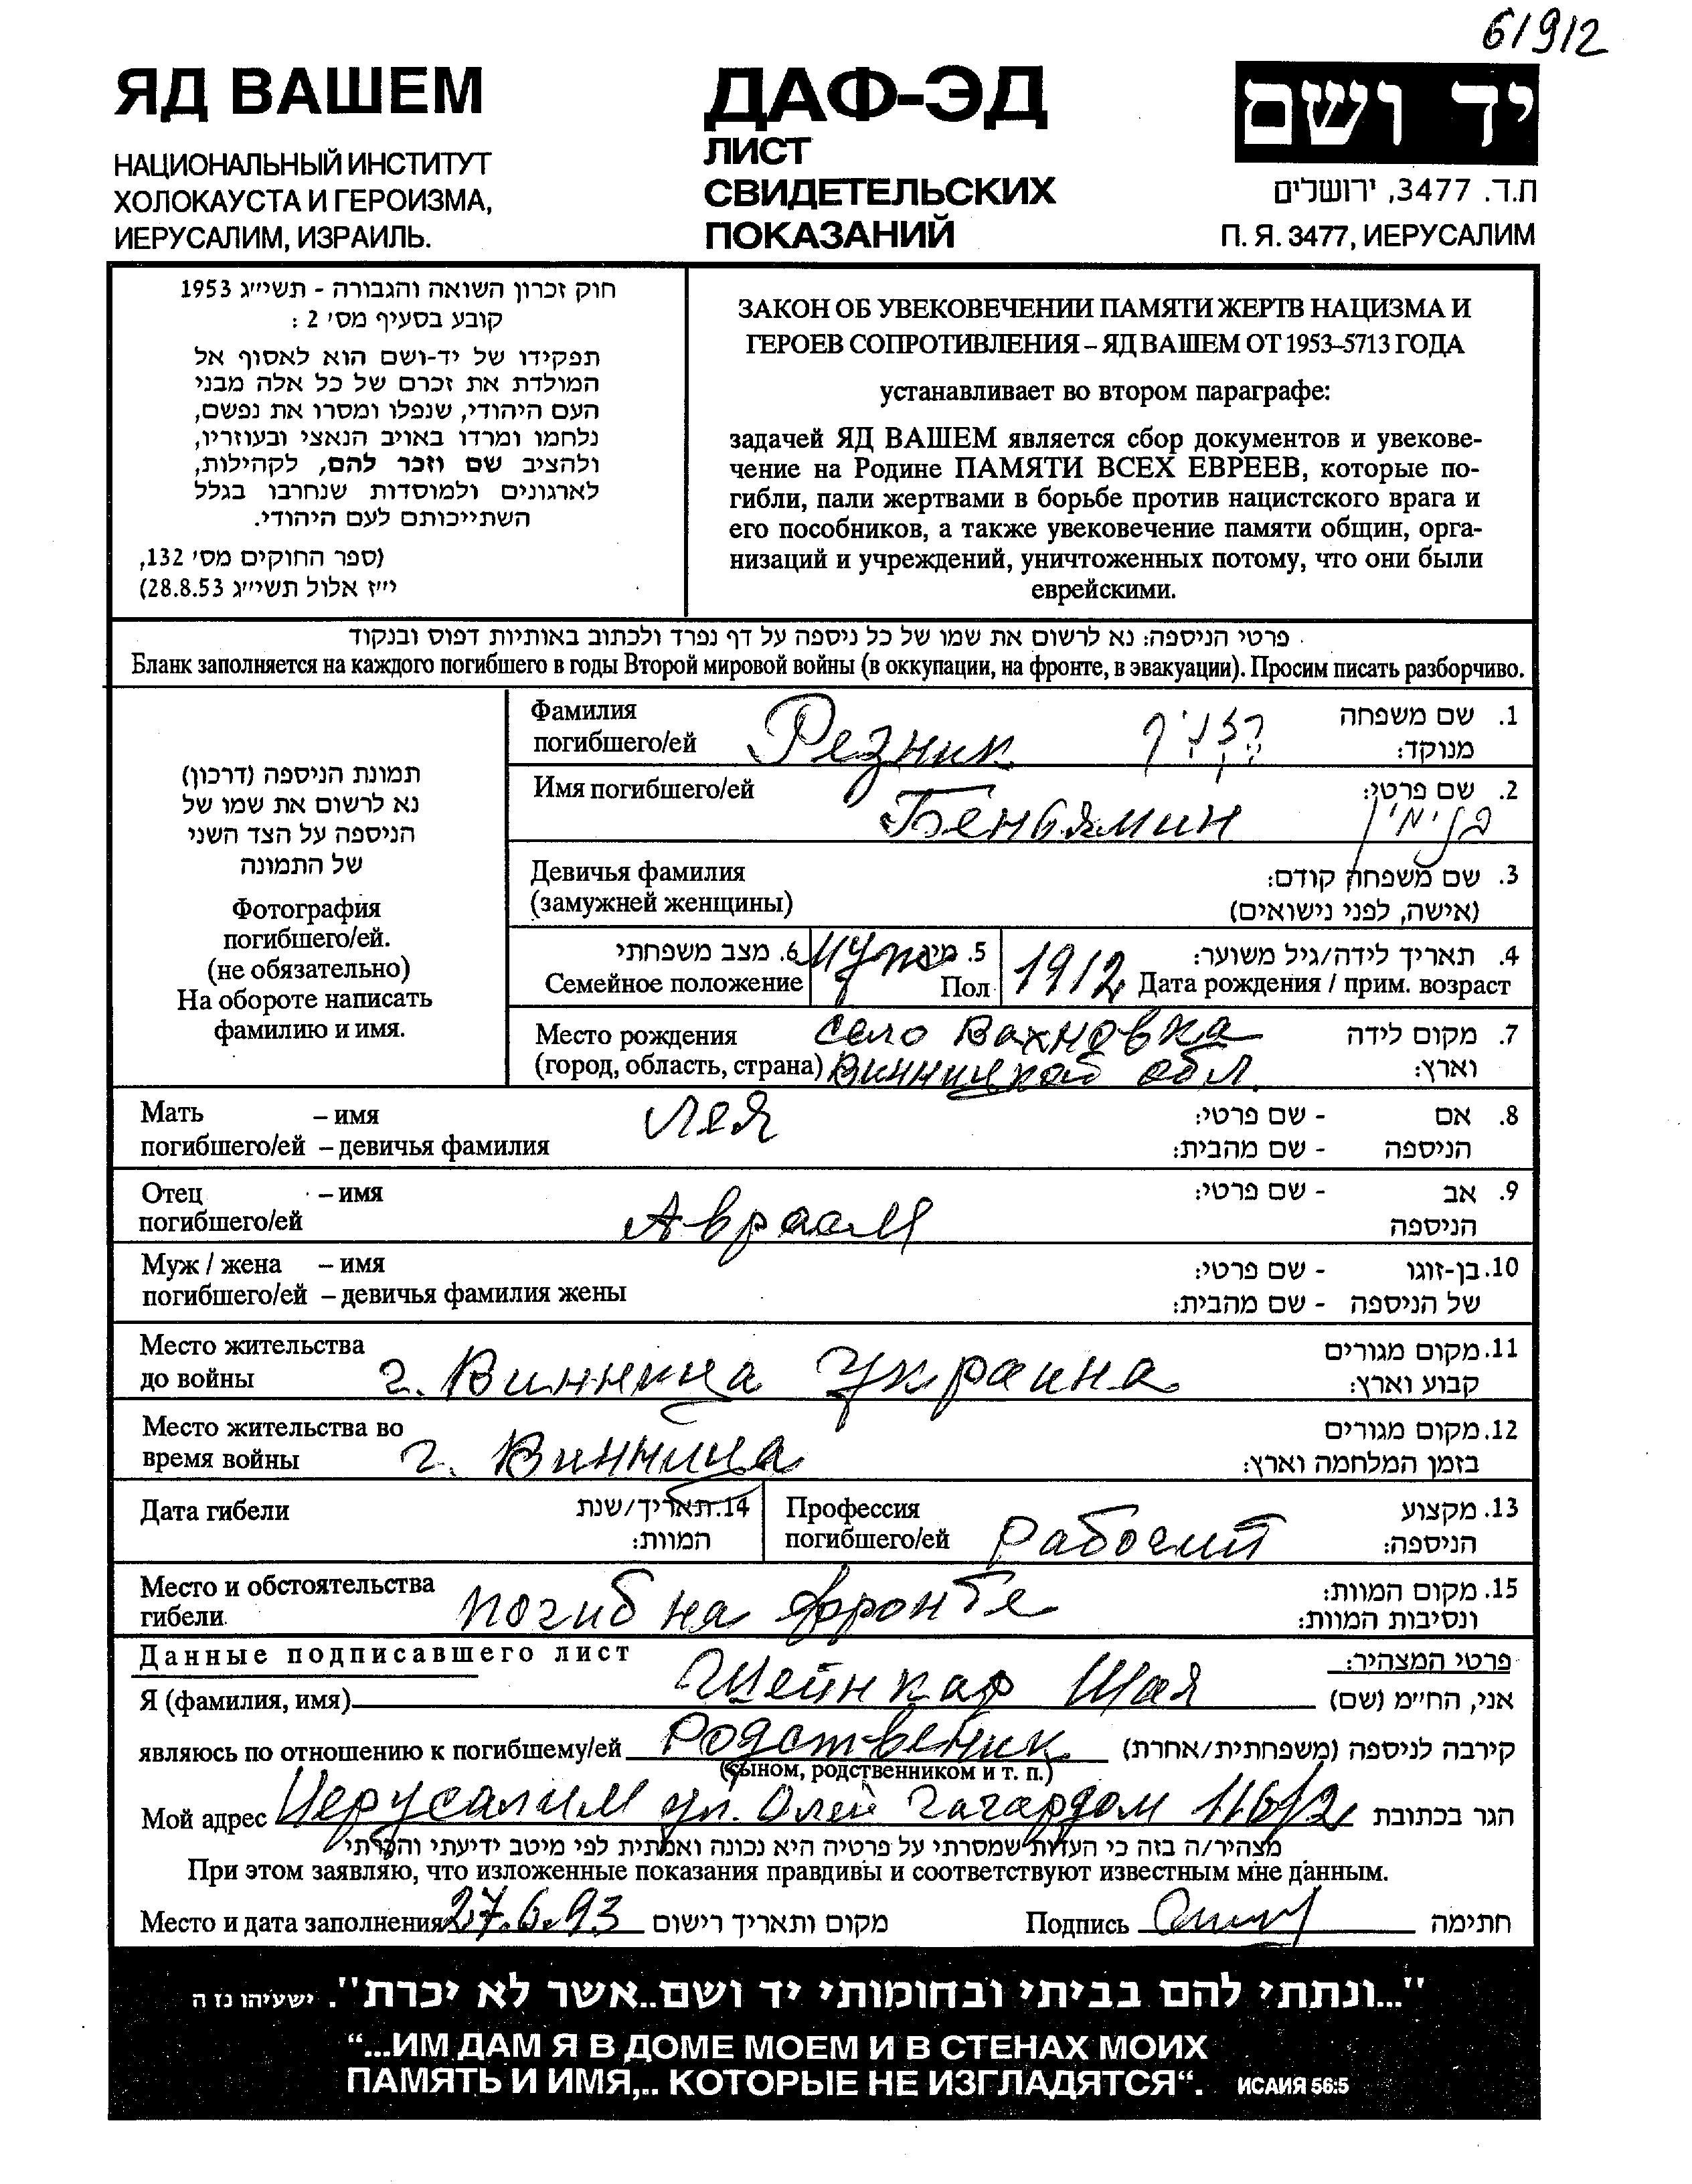 6/9/2
ЯД ВАШЕМ
НАЦИОНАЛЬНЫЙ ИНСТИТУТ
ХОЛОКАУСТА И ГЕРОИЗМА,
ИЕРУСАЛИМ, ИЗРАИЛЬ.
ДАФ-ЭД
ЛИСТ
СВИДЕТЕЛЬСКИХ
ПОКАЗАНИЙ
יד ושם
ת.ד. 3477, ירושלים
П. Я. 3477, ИЕРУСАЛИМ
חוק זכרון השואה והגבורה - תשי״ג 1953
קובע בסעיף מס׳ 2 :
תפקידו של יד-ושם הוא לאסוף אל
המולדת את זכרם של כל אלה מבני
העם היהודי, שנפלו ומסרו את נפשם,
נלחמו ומרדו באויב הנאצי ובעוזריו,
ולהציב שם וזכר להם, לקהילות,
לארגונים ולמוסדות שנחרבו בגלל
השתייכותם לעם היהודי.
(ספר החוקים מס׳ 132,
י״ז אלול תשי״ג 28.8.53)
ЗАКОН ОБ УВЕКОВЕЧЕНИИ ПАМЯТИ ЖЕРТВ НАЦИЗМА И
ГЕРОЕВ СОПРОТИВЛЕНИЯ – ЯД ВАШЕМ ОТ 1953–5713 ГОДА
устанавливает во втором параграфе:
задачей ЯД ВАШЕМ является сбор документов и увекове-
чение на Родине ПАМЯТИ ВСЕХ ЕВРЕЕВ, которые по-
гибли, пали жертвами в борьбе против нацистского врага и
его пособников, а также увековечение памяти общин, орга-
низаций и учреждений, уничтоженных потому, что они были
еврейскими.
פרטי הניספה: נא לרשום את שמו של כל ניספה על דף נפרד ולכתוב באותיות דפוס ובנקוד
Бланк заполняется на каждого погибшего в годы Второй мировой войны (в оккупации, на фронте, в эвакуации). Просим писать разборчиво.
תמונת הניספה (דרכון)
נא לרשום את שמו של
הניספה על הצד השני
של התמונה
Фотография
погибшего/ей.
(не обязательно)
На обороте написать
фамилию и имя.
Фамилия Резник רזניק 1. שם משפחה
погибшего/ей מנוקד:
Имя погибшего/ей Беньямин 2. שם פרטי:
בנימין
Девичья фамилия 3. שם משפחה קודם:
(замужней женщины) (אישה, לפני נישואים)
6. מצב משפחתי муж 5. מין 1912 4. תאריך לידה/גיל משוער:
Семейное положение Пол Дата рождения / прим. возраст
Место рождения село Вахновка 7. מקום לידה
(город, область, страна) Винницкой обл. וארץ:
Мать – имя Лея 8. אם - שם פרטי:
погибшего/ей – девичья фамилия הניספה - שם מהבית:
Отец – имя Авраам 9. אב - שם פרטי:
погибшего/ей הניספה
Муж / жена – имя 10. בן-זוגו - שם פרטי:
погибшего/ей – девичья фамилия жены של הניספה - שם מהבית:
Место жительства 11. מקום מגורים
до войны г. Винница Украина קבוע וארץ:
Место жительства во 12. מקום מגורים
время войны г. Винница בזמן המלחמה וארץ:
Дата гибели 14. תאריך/שנת
המוות:
Профессия 13. מקצוע
погибшего/ей Рабочий הניספה:
Место и обстоятельства 15. מקום המוות:
гибели погиб на фронте ונסיבות המוות:
Данные подписавшего лист פרטי המצהיר:
Я (фамилия, имя) Шейнкар Шая אני, החי״מ (שם)
являюсь по отношению к погибшему/ей Родственик קירבה לניספה (משפחתית/אחרת)
(сыном, родственником и т. п.)
Мой адрес Иерусалим ул. Олей Гагардом 116/2 הגר בכתובת
מצהיר/ה בזה כי העדות שמסרתי על פרטיה היא נכונה ואמתית לפי מיטב ידיעתי והכרתי
При этом заявляю, что изложенные показания правдивы и соответствуют известным мне данным.
Место и дата заполнения 27.6.93 מקום ותאריך רישום Подпись חתימה
"...ונתתי להם בביתי ובחומותי יד ושם..אשר לא יכרת". ישעיהו נז ה
“...ИМ ДАМ Я В ДОМЕ МОЕМ И В СТЕНАХ МОИХ
ПАМЯТЬ И ИМЯ,.. КОТОРЫЕ НЕ ИЗГЛАДЯТСЯ“. ИСАИЯ 56:5